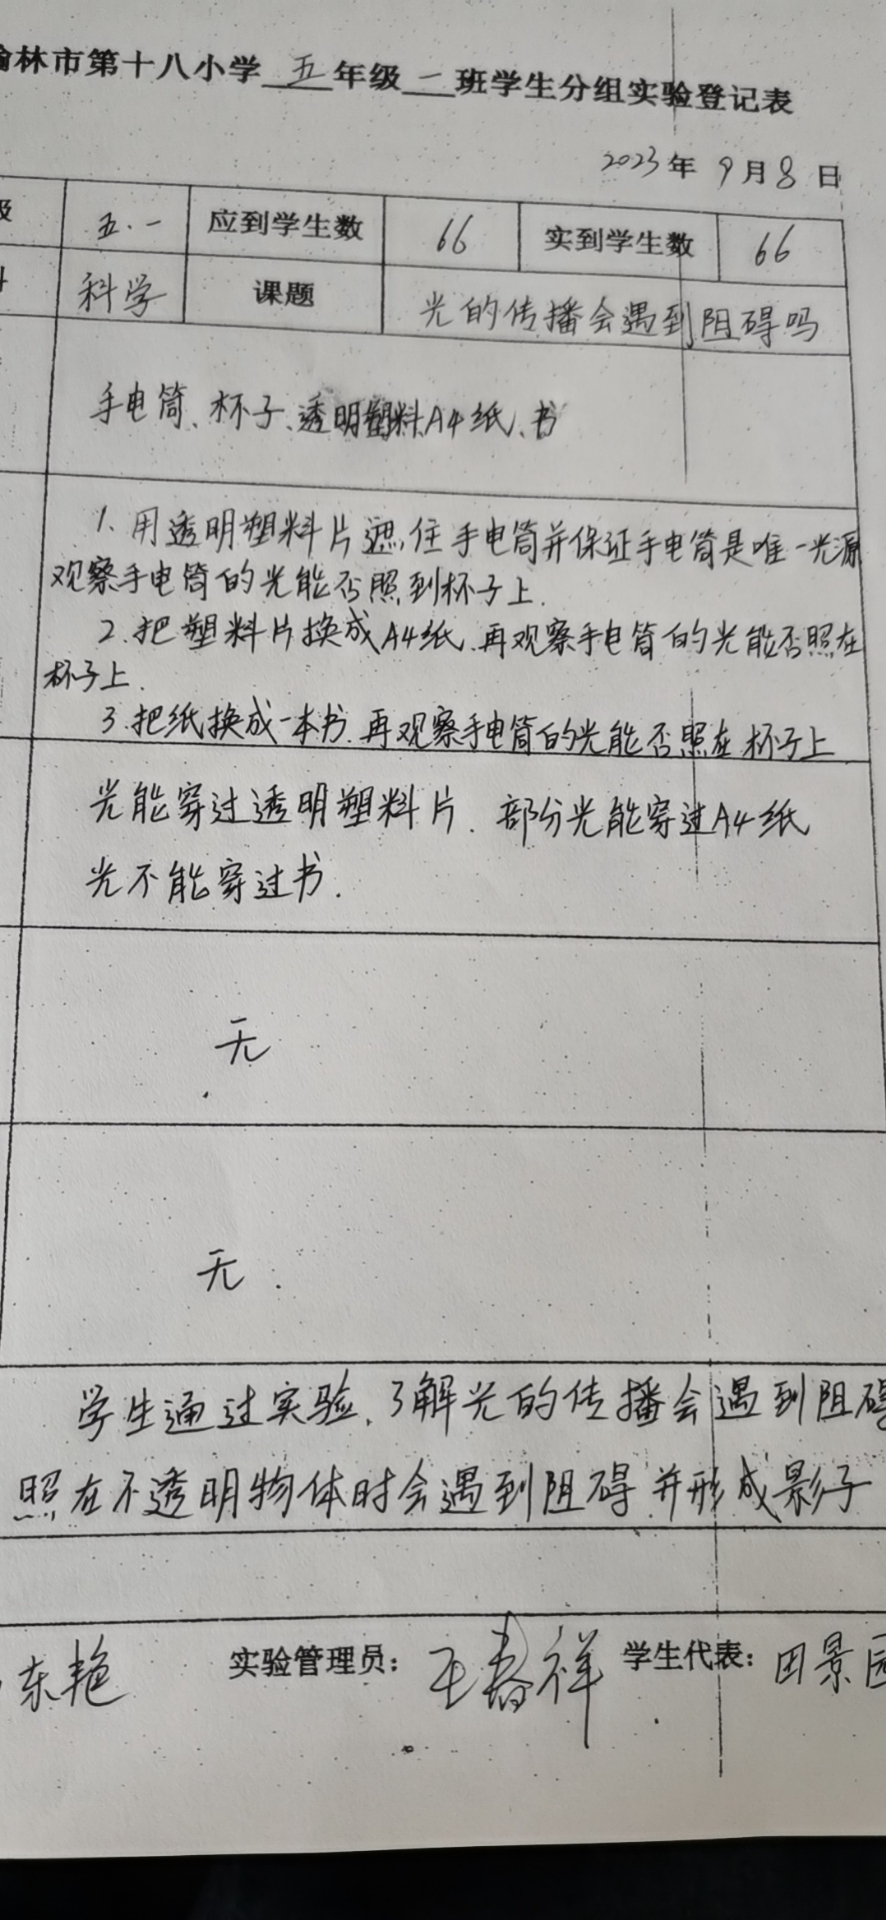 榆林市第十八小学 五 年级 一 班学生分组实验登记表
2023年 9月 8日
级 五.一 应到学生数 66 实到学生数 66
科学 课题 光的传播会遇到阻碍吗
手电筒、杯子、透明塑料A4纸、书
1、用透明塑料片遮住手电筒并保证手电筒是唯一光源
观察手电筒的光能否照到杯子上.
2.把塑料片换成A4纸.再观察手电筒的光能否照在
杯子上.
3.把纸换成一本书.再观察手电筒的光能否照在杯子上
光能穿过透明塑料片.部分光能穿过A4纸
光不能穿过书.
无
无.
学生通过实验.了解光的传播会遇到阻碍
照在不透明物体时会遇到阻碍并形成影子
东艳 实验管理员: 王春祥 学生代表: 田景